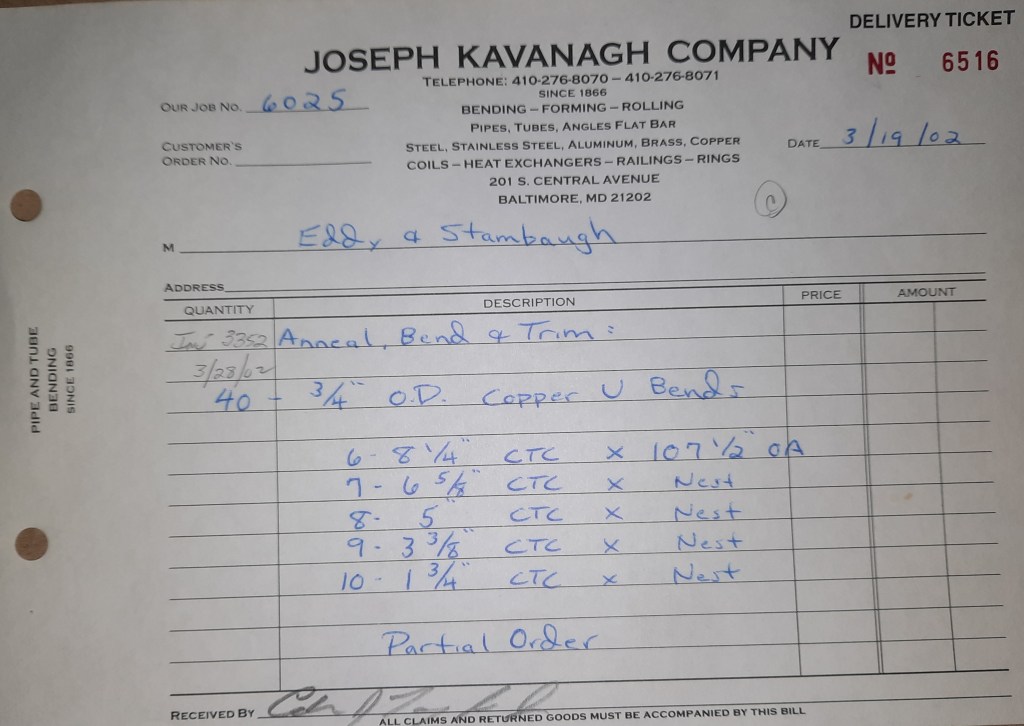 DELIVERY TICKET
JOSEPH KAVANAGH COMPANY
Nº 6516
TELEPHONE: 410-276-8070 – 410-276-8071
SINCE 1866
OUR JOB NO. 6025
BENDING – FORMING – ROLLING
PIPES, TUBES, ANGLES FLAT BAR
CUSTOMER'S
ORDER NO.
STEEL, STAINLESS STEEL, ALUMINUM, BRASS, COPPER
DATE 3/19/02
COILS – HEAT EXCHANGERS – RAILINGS – RINGS
201 S. CENTRAL AVENUE
BALTIMORE, MD 21202
C
M Eddy & Stambaugh
ADDRESS
QUANTITY DESCRIPTION PRICE AMOUNT
Inv 3352 Anneal, Bend & Trim:
3/28/02
40 - 3/4" O.D. Copper U Bends
6 - 8 1/4" CTC x 107 1/2" OA
7 - 6 5/8" CTC x Nest
8 - 5" CTC x Nest
9 - 3 3/8" CTC x Nest
10 - 1 3/4" CTC x Nest
Partial Order
RECEIVED BY
ALL CLAIMS AND RETURNED GOODS MUST BE ACCOMPANIED BY THIS BILL
PIPE AND TUBE
BENDING
SINCE 1866